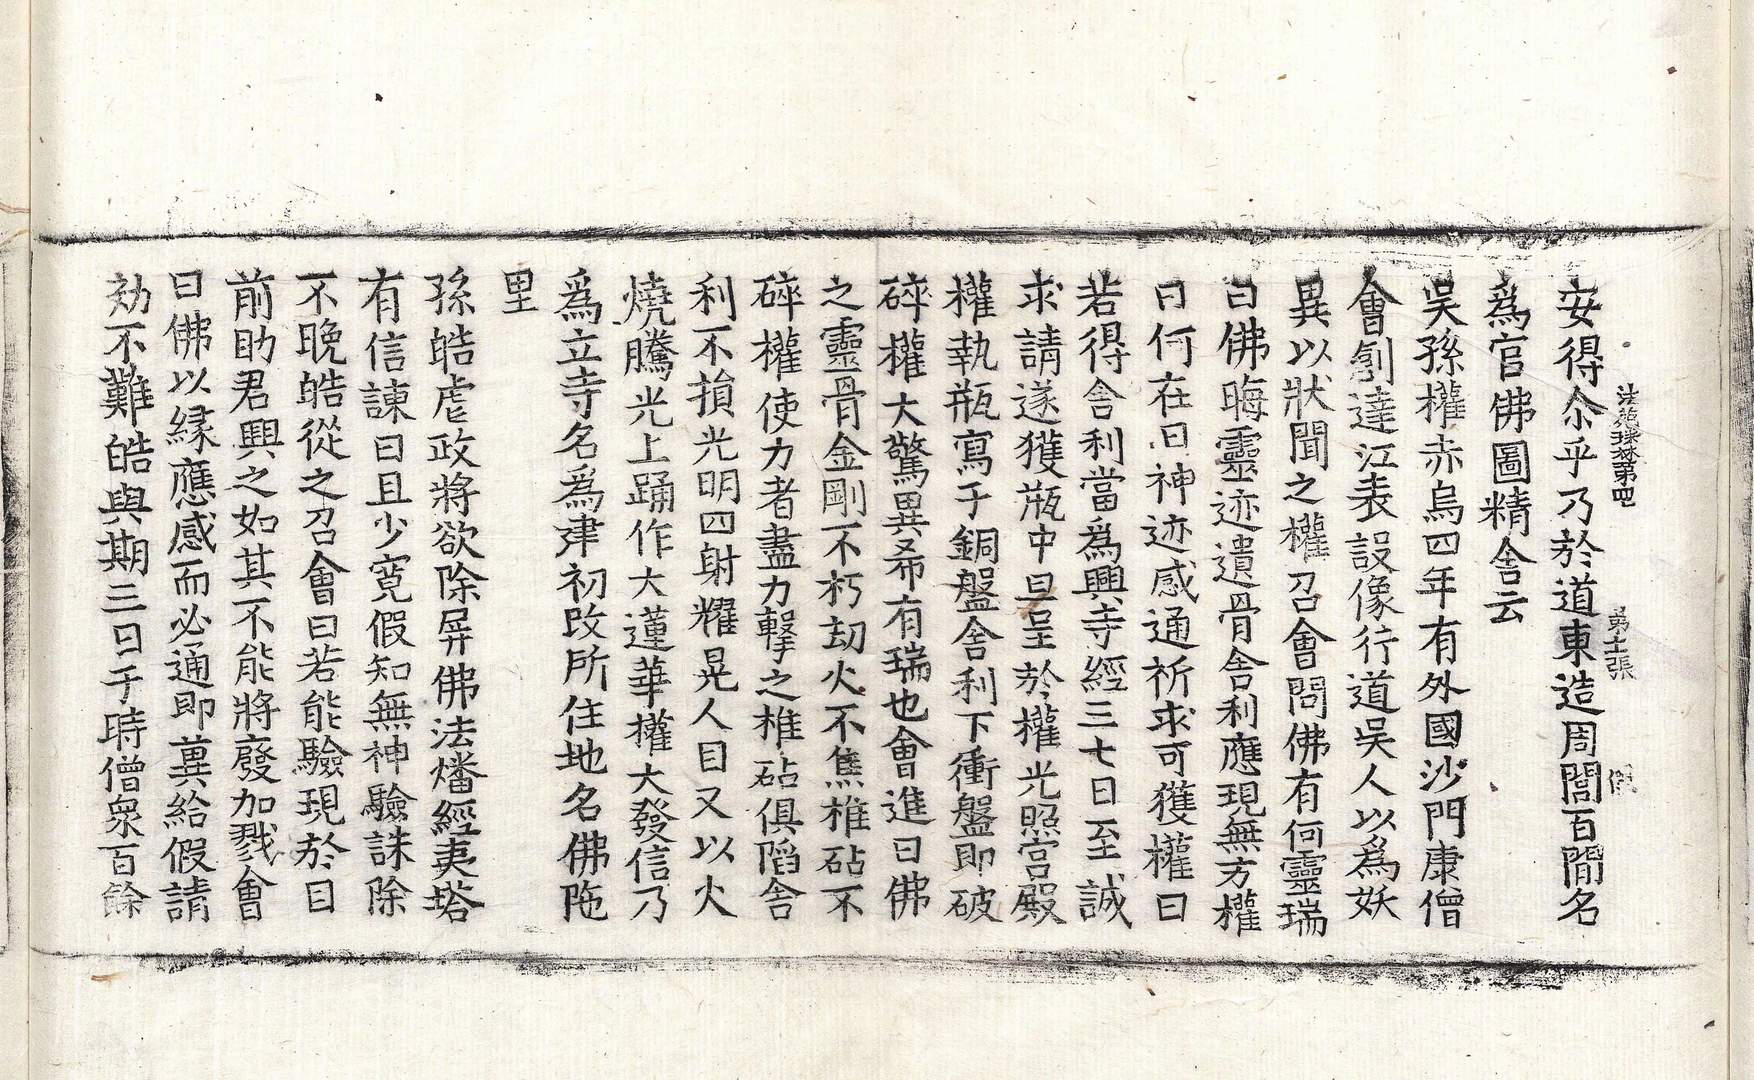 法苑珠林第四 第十張 俄
安得尒乎乃於道東造周閭百閒名
爲官佛圖精舍云
吴孫權赤烏四年有外國沙門康僧
會創達江表設像行道吴人以爲妖
異以狀聞之權召會問佛有何靈瑞
曰佛晦靈迹遺骨舍利應現無方權
曰何在曰神迹感通祈求可獲權曰
若得舍利當爲興寺經三七日至誠
求請遂獲瓶中旦呈於權光照宮殿
權執瓶寫于銅盤舍利下衝盤即破
碎權大驚異希有瑞也會進曰佛
之靈骨金剛不朽劫火不焦椎砧不
碎權使力者盡力擊之椎砧俱陷舍
利不損光明四射耀晃人目又以火
燒騰光上踊作大蓮華權大發信乃
爲立寺名爲建初改所住地名佛陁
里
孫皓虐政將欲除屏佛法燔經夷塔
有信諫曰且少寬假知無神驗誅除
不晚皓從之召會曰若能驗現於目
前助君興之如其不能將廢加戮會
曰佛以緣應感而必通即冀給假請
効不難皓與期三日于時僧衆百餘